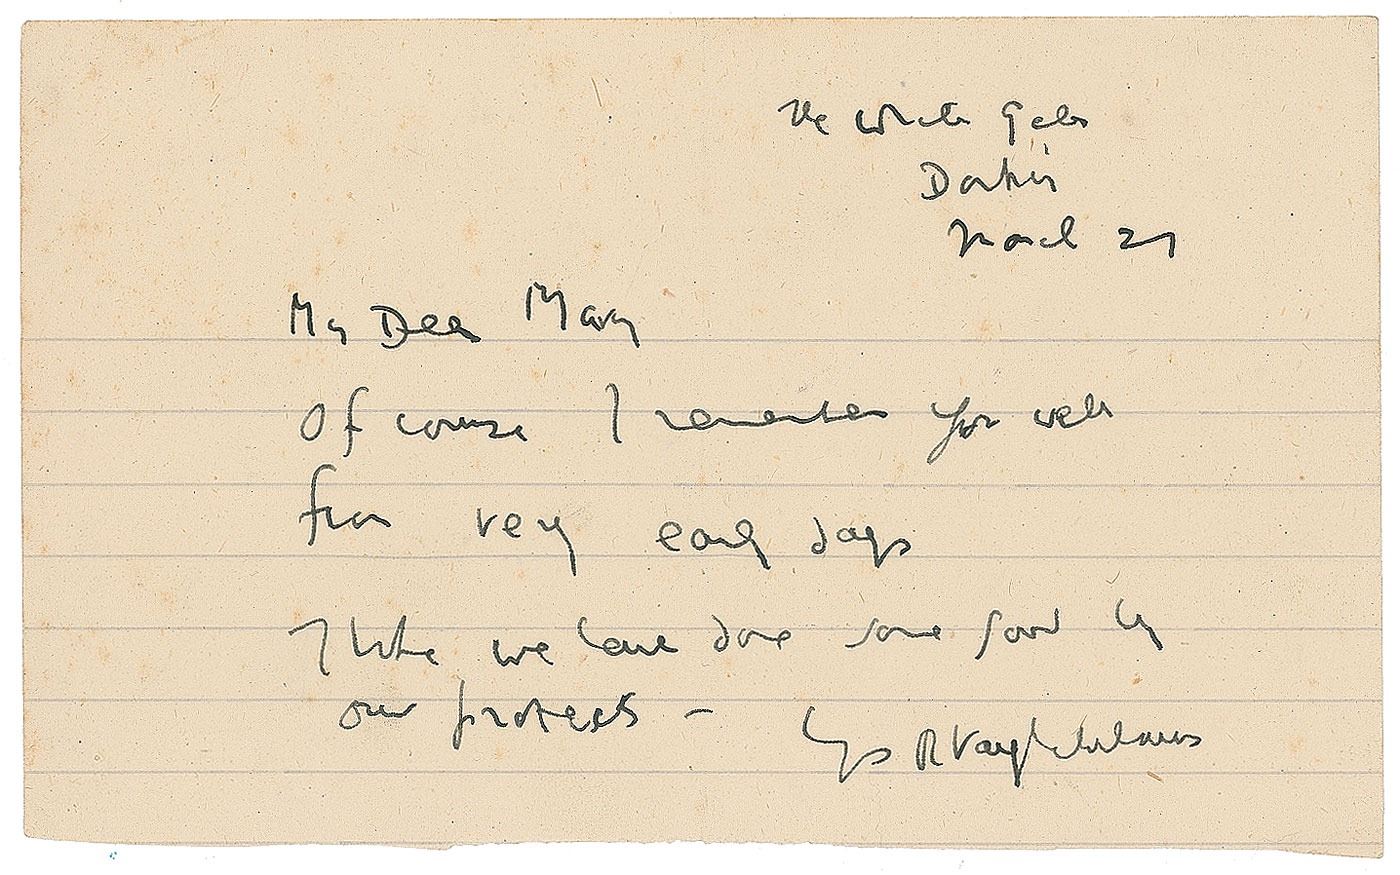 The White Gates
Dorking
March 27
My Dear Mary
Of course I remember you well
from very early days
I think we have done some good by
our protests -
Yrs R Vaughan Williams